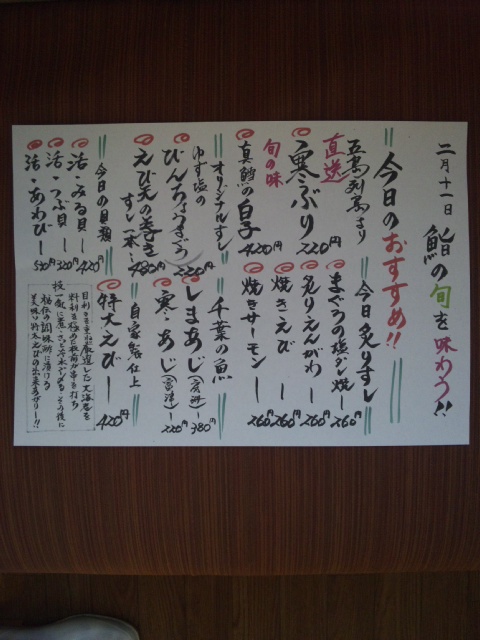 二月十一日 鮨の旬を味わう!!
今日のおすすめ!!
五島列島より
直送
寒ぶり 220円
旬の味
真鱈の白子 420円
オリジナルすし
ゆず塩の
びんちょうまぐろ 220円
えび天の巻き
すし一本 480円
今日の貝類
活・みる貝ー420円
活・つぶ貝ー320円
活・あわびー530円
今日炙りすし
まぐろの塩ダレ焼ー260円
炙りえんがわー260円
焼きえびー260円
焼きサーモンー260円
千葉の魚
しまあじ ー380円
寒・あじ(富津)ー220円
自家製仕上
特大えびー420円